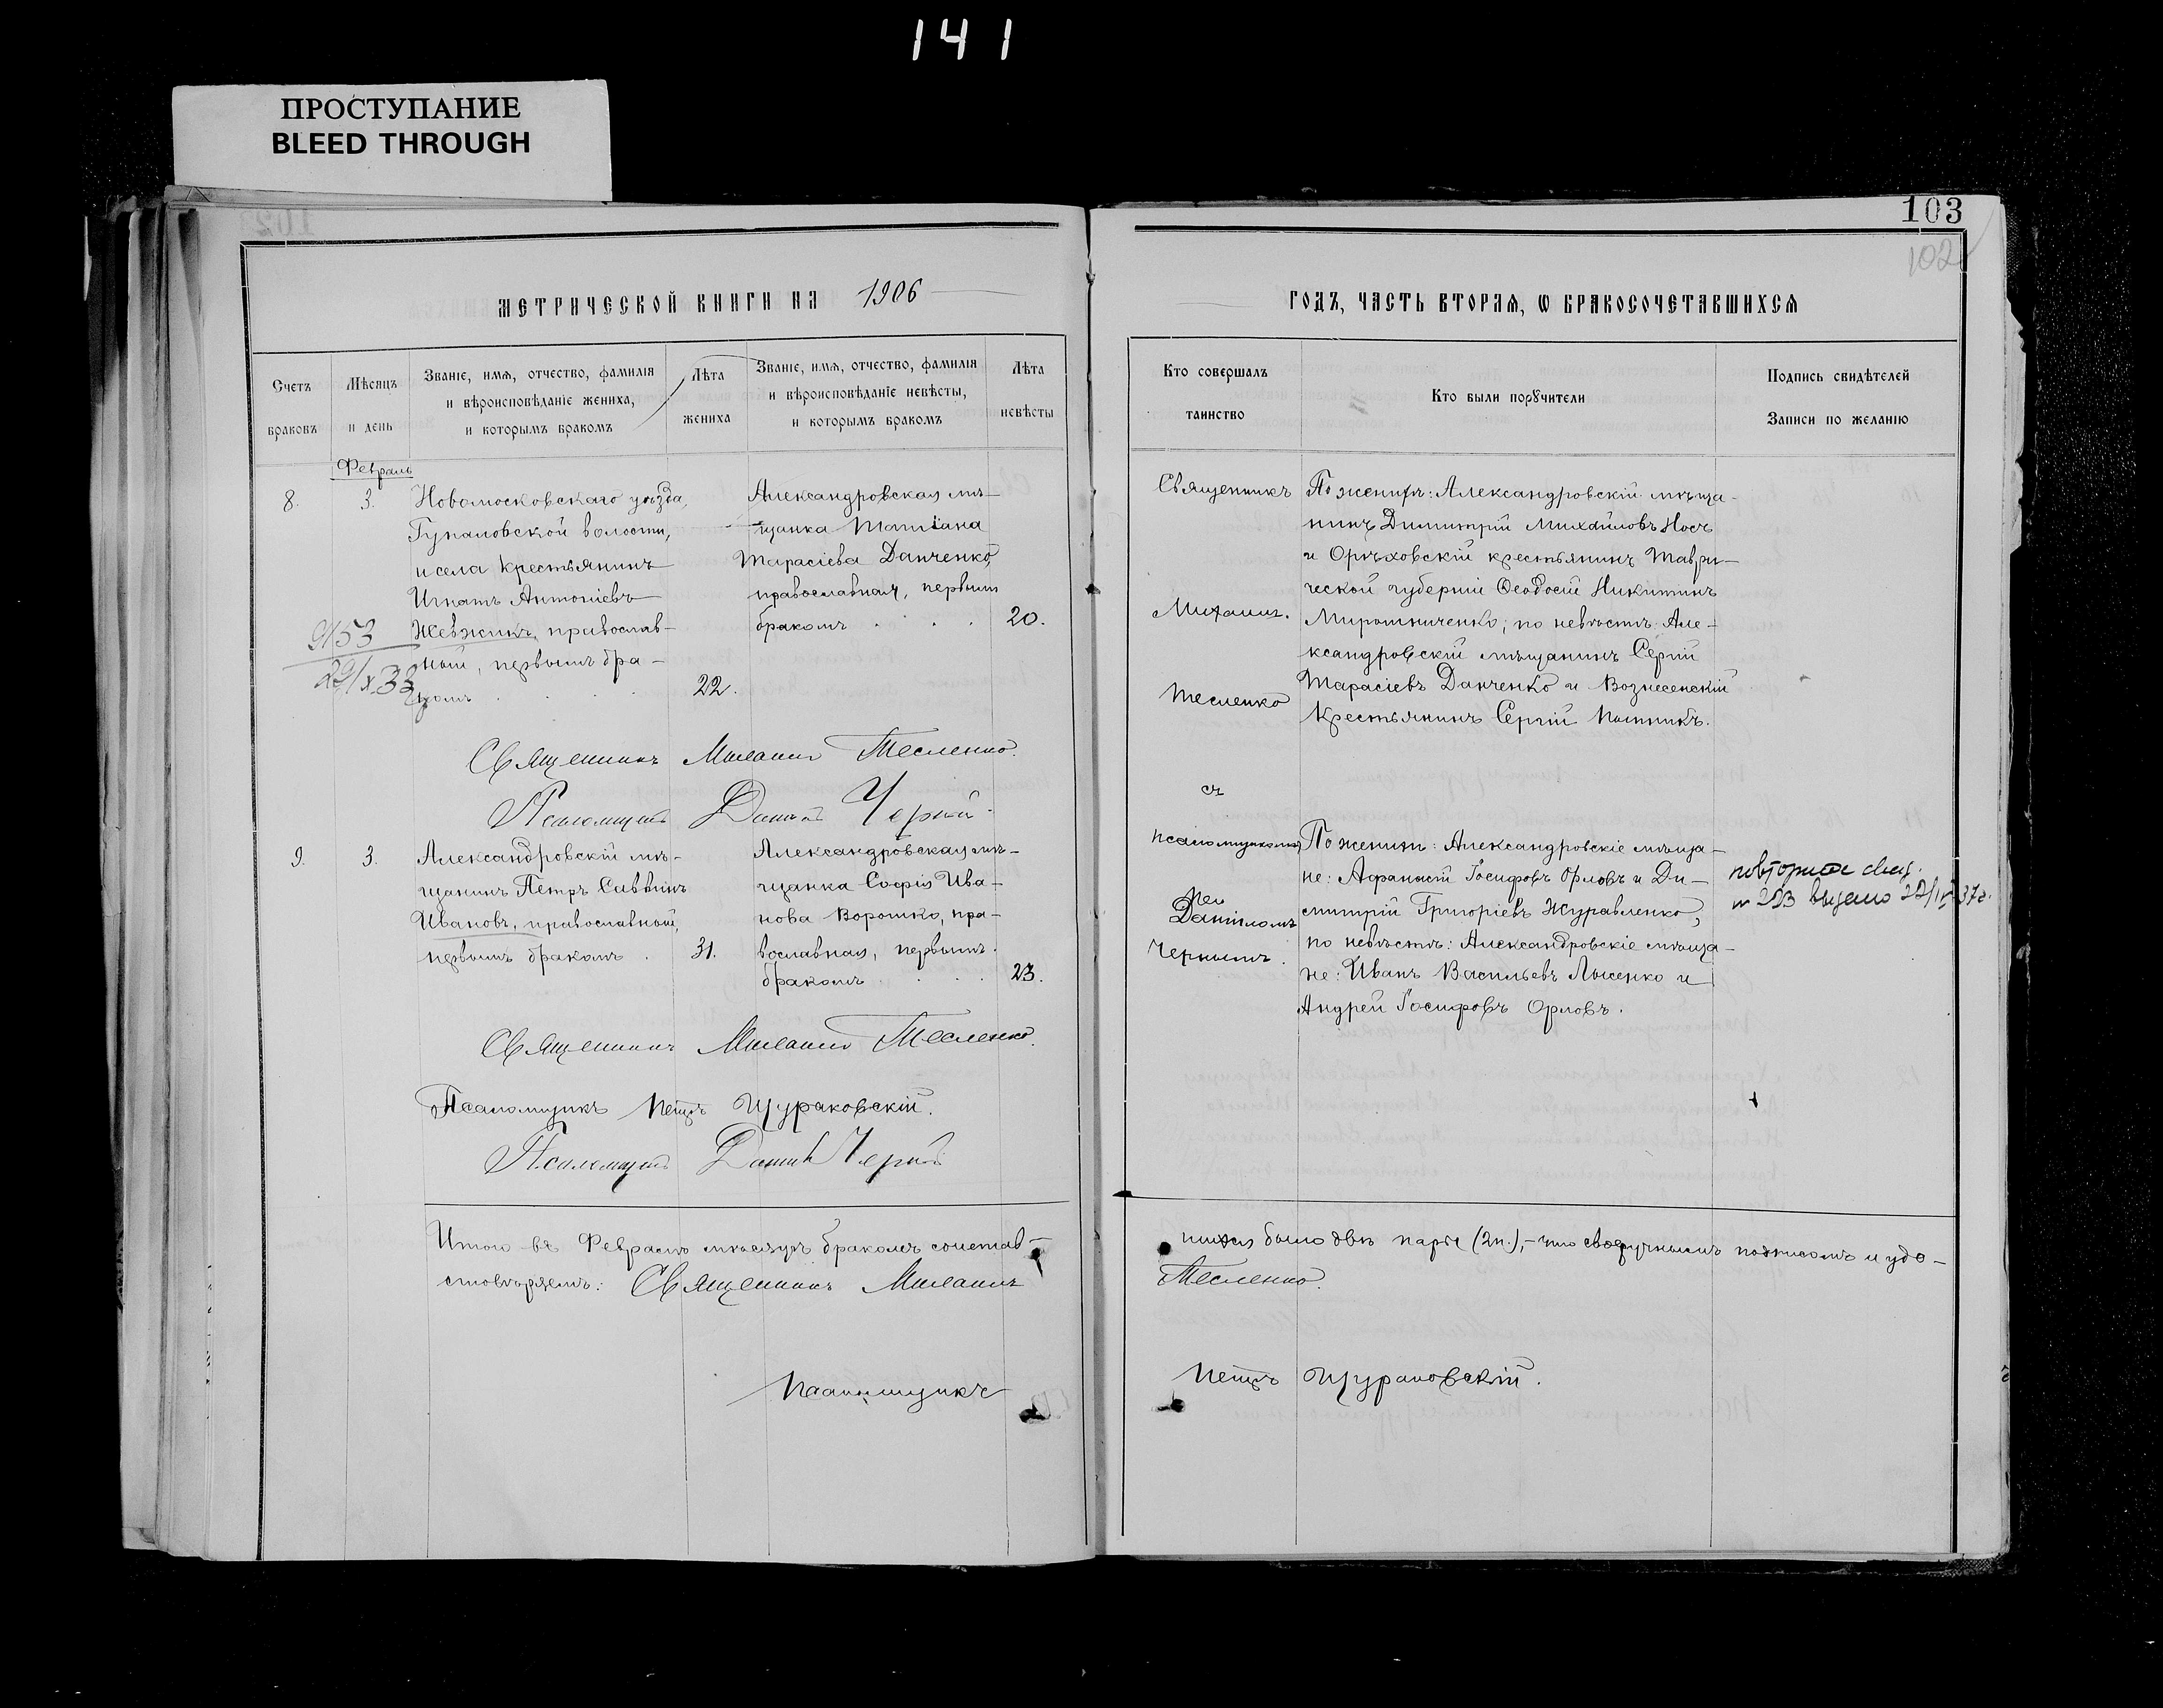 141
ПРОСТУПАНИЕ
BLEED THROUGH
103
102
МЕТРИЧЕСКОЙ КНИГИ НА 1906
ГОДЪ, ЧАСТЬ ВТОРАЯ, Ѡ БРАКОСОЧЕТАВШИХСЯ
Счетъ браковъ
Мѣсяцъ и день
Званіе, имя, отчество, фамилія
и вѣроисповѣданіе жениха,
и которымъ бракомъ
Лѣта жениха
Званіе, имя, отчество, фамилія
и вѣроисповѣданіе невѣсты,
и которымъ бракомъ
Лѣта невѣсты
Кто совершалъ
таинство
Кто были поручители
Подпись свидѣтелей
Записи по желанію
Февраль
8.
3.
Новомосковскаго уѣзда,
Гупаловской волости,
и села крестьянинъ
Игнатъ Антоніевъ
Жевжикъ, православ-
ный, первымъ бра-
комъ
22.
9153
29/X.33
Александровская мѣ-
щанка Татіана
Тарасіева Данченко,
православная, первым
бракомъ
20.
Священникъ
Михаилъ
Тесленко
съ
псаломщикомъ
Даніиломъ
Чернымъ.
По женихѣ: Александровскій мѣща-
нинъ Димитрій Михайловъ Носъ
и Орѣховскій крестьянинъ Таври-
ческой губерніи Ѳеодосій Никитинъ
Мирошниченко; по невѣстѣ: Але-
ксандровскій мѣщанинъ Сергій
Тарасіевъ Данченко и Вознесенскій
крестьянинъ Сергій
Священникъ Михаилъ Тесленко.
Псаломщикъ Даніилъ Черный.
9.
3.
Александровскій мѣ-
щанинъ Петръ Саввинъ
Ивановъ, православный,
первымъ бракомъ
31.
Александровская мѣ-
щанка Софія Ива-
нова Ворошко, пра-
вославная, первымъ
бракомъ
23.
По женихѣ: Александровскіе мѣща-
не: Афанасій Іосифовъ Орловъ и Ди-
митрій Григоріевъ Журавленко,
по невѣстѣ: Александровскіе мѣща-
не: Иванъ Васильевъ Лысенко и
Андрей Іосифовъ Орловъ.
37г.
Священникъ Михаилъ Тесленко.
Псаломщикъ Петръ Щураковскій.
Псаломщикъ Даніил Черный
Итого въ Февралѣ мѣсяцѣ бракомъ сочетав-
шихся было двѣ пары (2п.),- что своеручнымъ подписомъ и удо-
стовѣряемъ: Священникъ Михаилъ
Тесленко.
Псаломщикъ
Петръ Щураковскій.